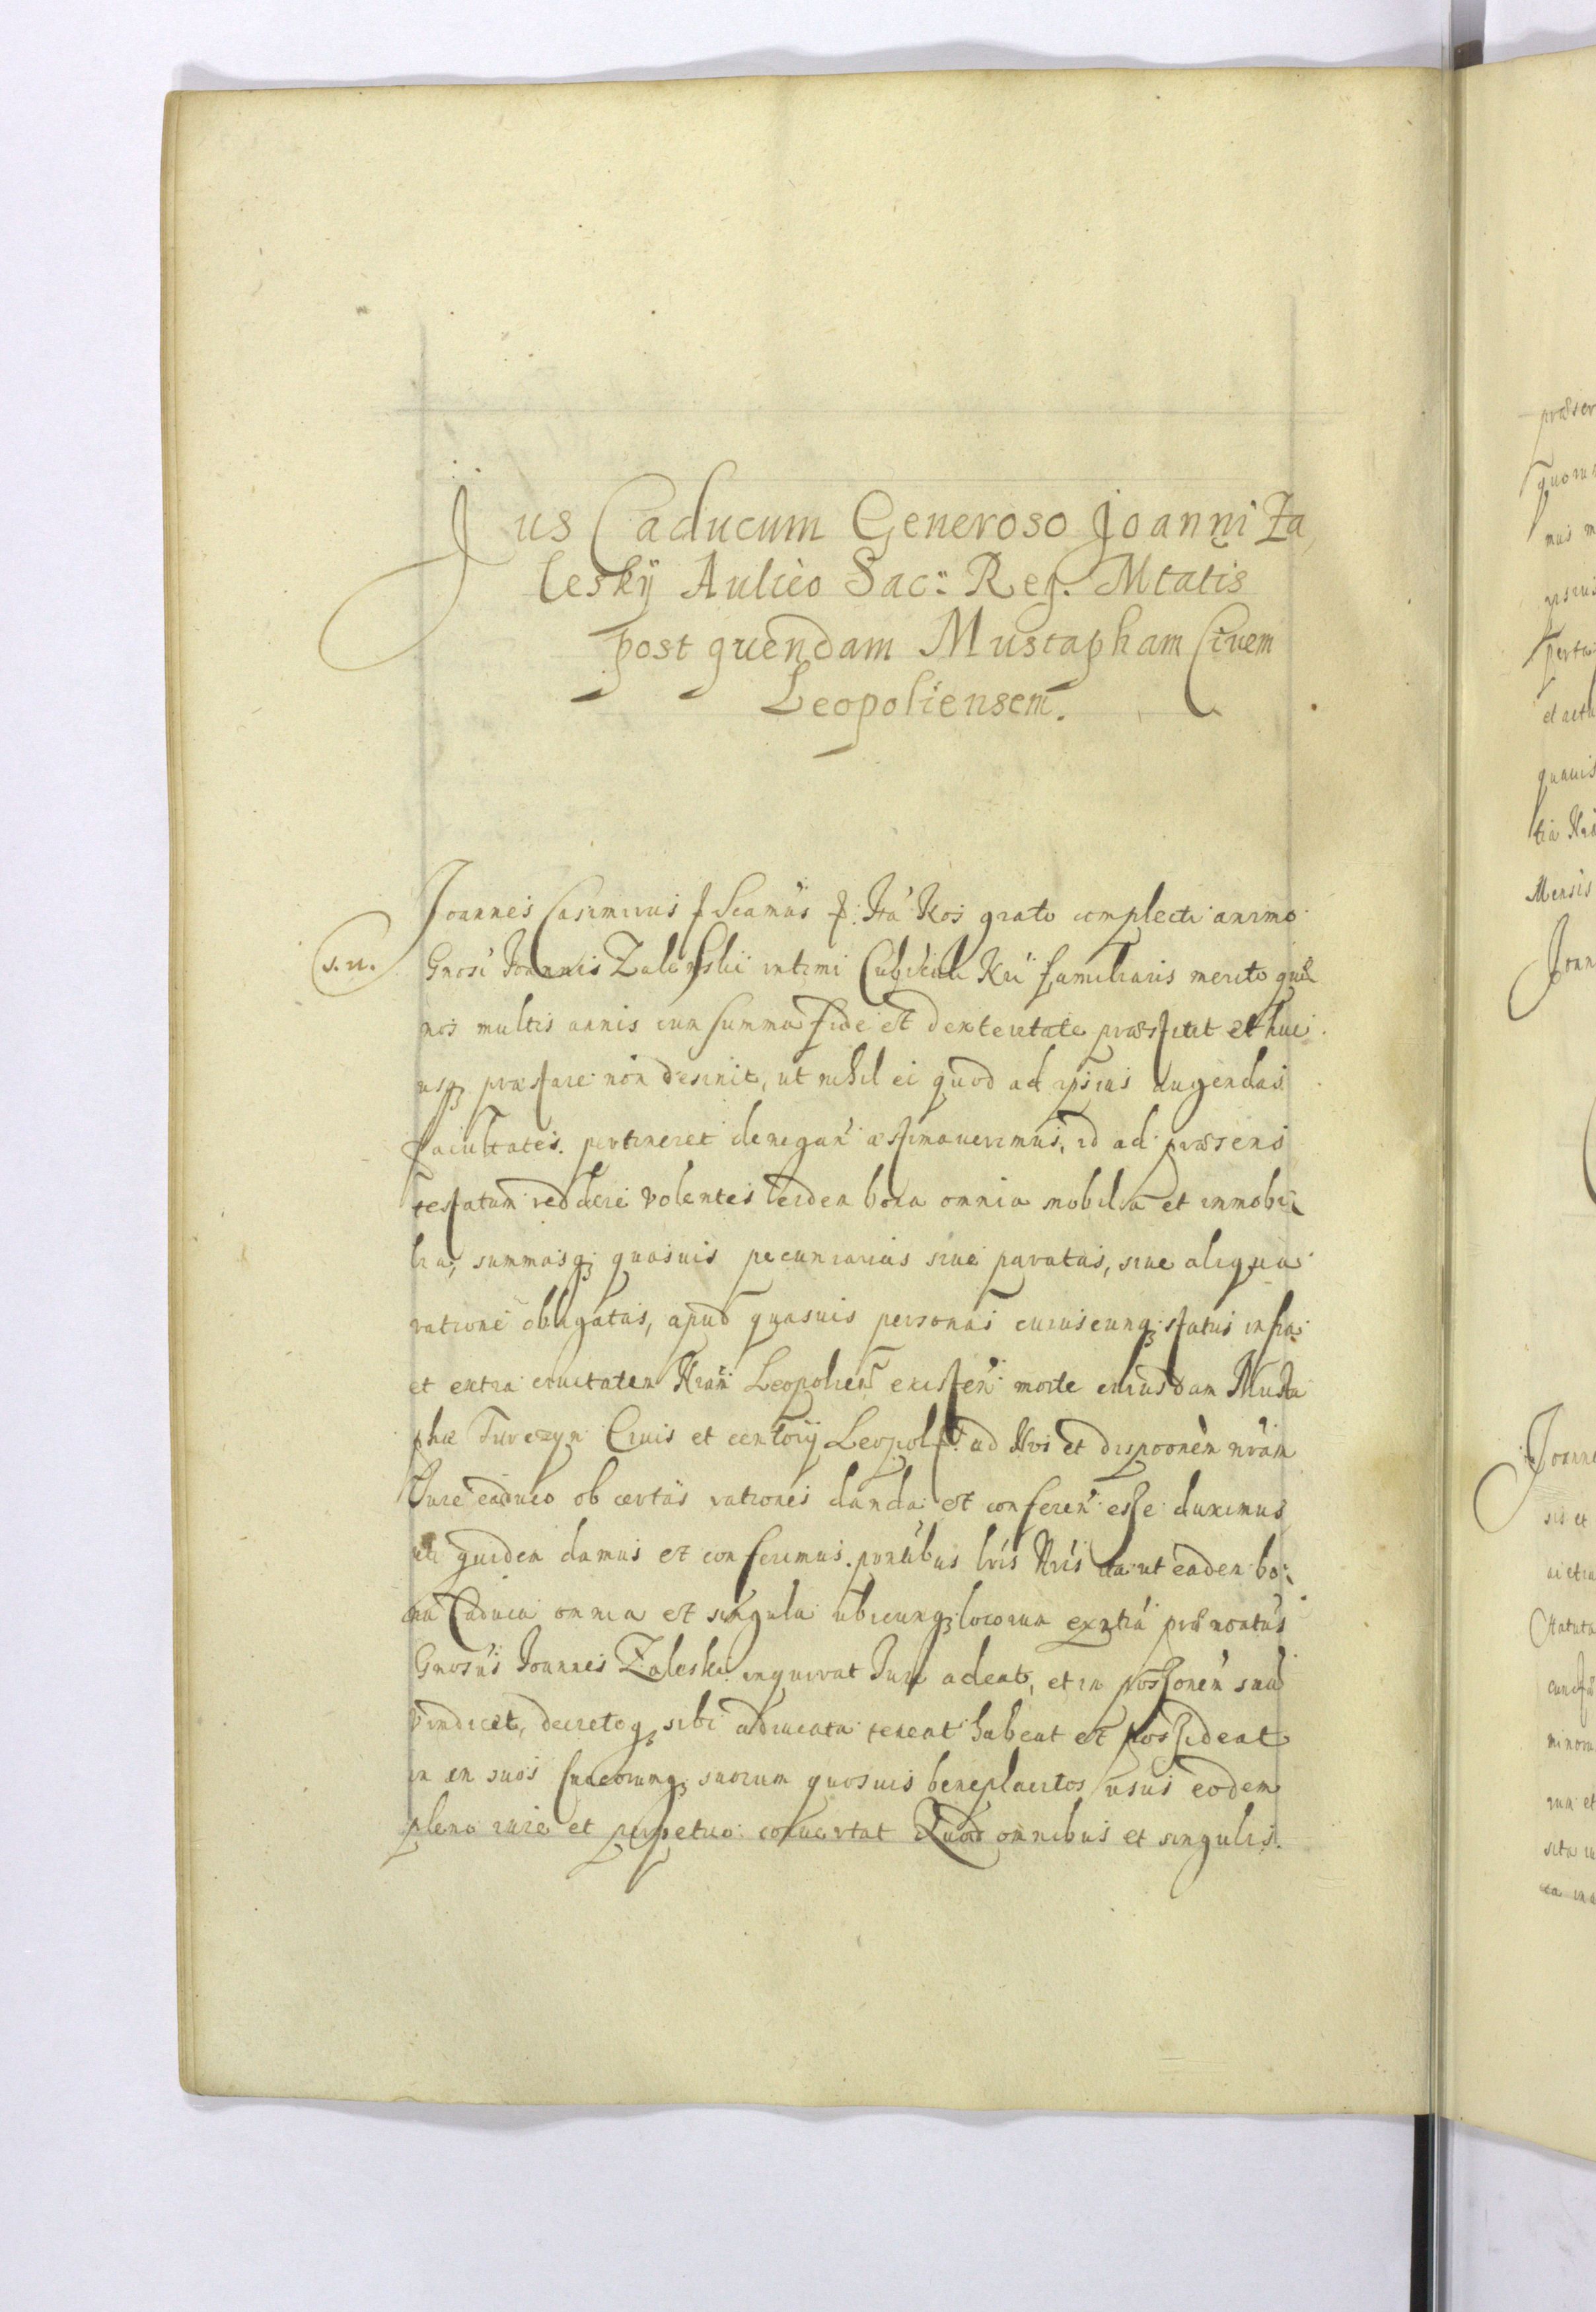 Jus Caducum Generoso Joanni Za,
lesky Aulico Sac: Reg. Mtatis
post quendam Mustapham Civem
Leopoliensem.
Joannes Casimirus Ita Nos grato complecti animo
(s. n.) Gnosi Joannis Zaleskii intimi Cubiculi Nri familiaris merito quæ
nos multis annis cum summa fide et dexteritate præstitit et huc
usq; præstare non desinit, ut nihil ei quod ad ipsius augendas
facultates pertineret denegan æstimaverimus, id ad præsens
testatum reddere volentes eidem bona omnia mobilia et immobi:
lia, summasq; quasvis pecuniarias sive paratas, sive aliqua
ratione obligatas, apud quasvis personas cuiuscunq; status infra
et extra civitatem Nram Leopolien existen morte cuiusdam Musta
phæ Turczyn Civis et Leopol ad Nos et disponem nram
Jure caduco ob certas rationes danda et conferen esse duximus
uti quidem damus et conferimus pntibus lris Nris ita ut eadem bo:
na Caduca omnia et singula ubicunq; locorum exntia prænotatus
Gnosus Joannes Zaleski inquirat Jure adeat, et in possonem sua
vindicet, decretoq; sibi adiucata teneat habeat et possideat
in suos suorum quosvis beneplacitos usus eodem
pleno iure et perpetuo convertat Quod omnibus et singulis